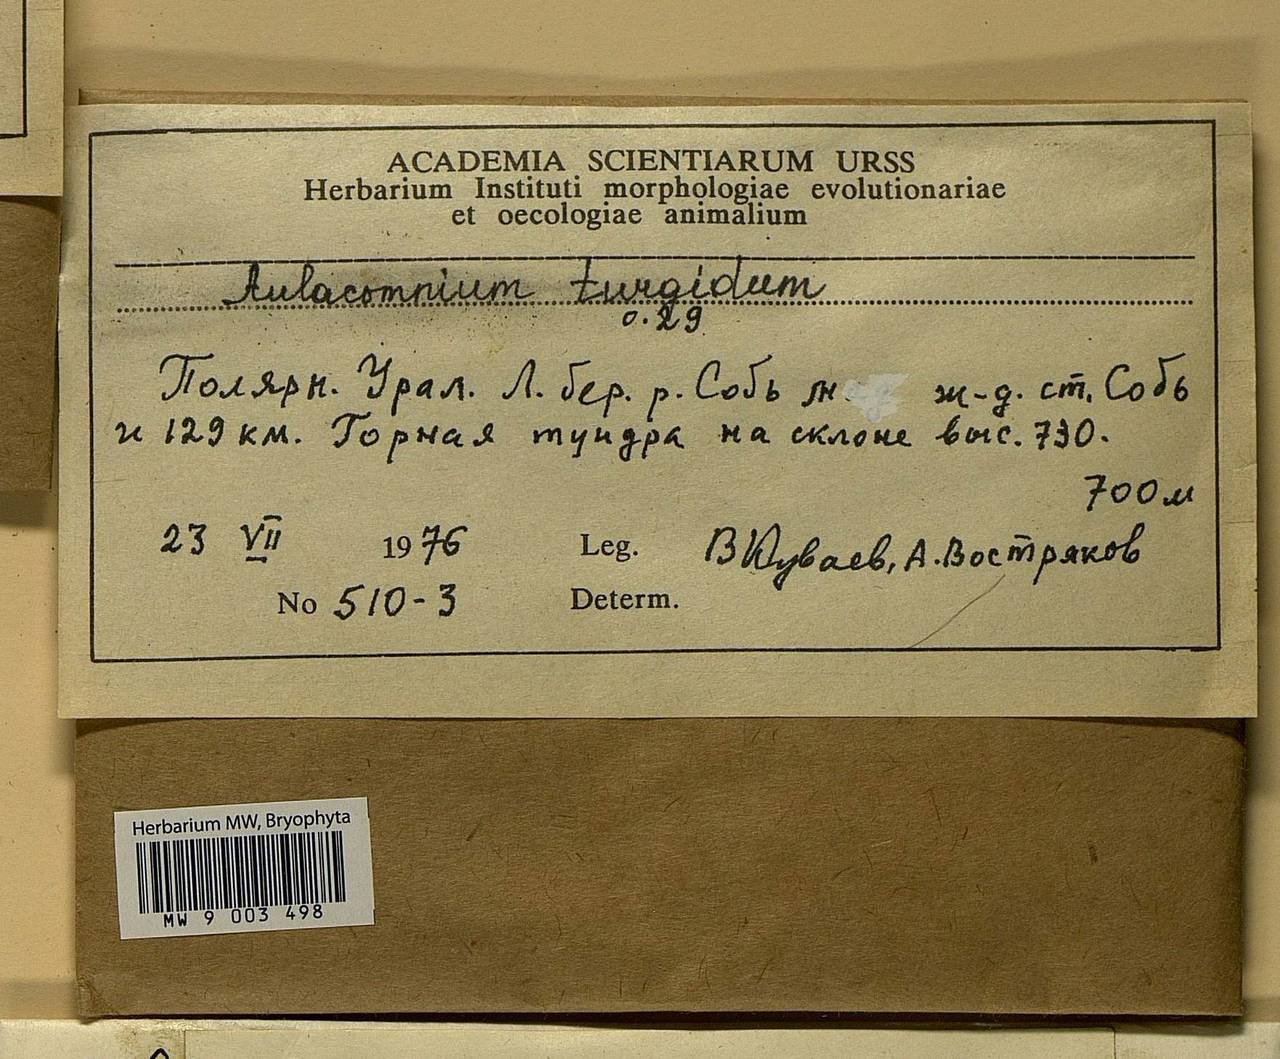 ACADEMIA SCIENTIARUM URSS
Herbarium Instituti morphologiae evolutionariae
et oecologiae animalium
Aulacomnium turgidum
0.29
Полярн. Урал. Л. бер. р. Собь м. ж-д. ст. Собь
и 129 км. Горная тундра на склоне выс. 730.
700 м
23 VII 1976 Leg. В Куваев, А. Востряков
No 510-3 Determ.
Herbarium MW, Bryophyta
MW 9 003 498